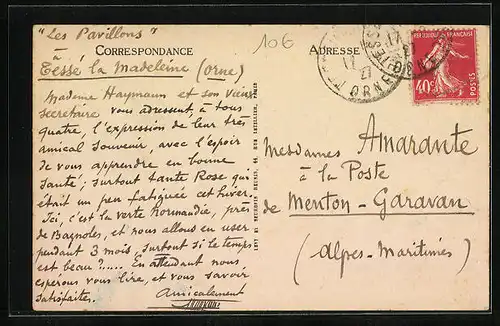 "Les Pavillons"
à
Tessé la Madeleine (Orne)
CORRESPONDANCE
106
ADRESSE
RÉPUBLIQUE FRANÇAISE
40c
POSTES
ORNE
Madame Haymann et son vieux
secrétaire vous adressent, à tous
quatre, l'expression de leur très
amical souvenir, avec l'espoir
de vous apprendre en bonne
santé; surtout tante Rose qui
était un peu fatiguée cet hiver.
Ici, c'est la verte Normandie, près
de Bagnoles, et nous allons en user
pendant 3 mois, surtout si le temps
est beau!..... En attendant nous
espérons vous lire, et vous savoir
satisfaits.
Amicalement
Mesdames Amarante
à la Poste
de Menton-Garavan
(Alpes-Maritimes)